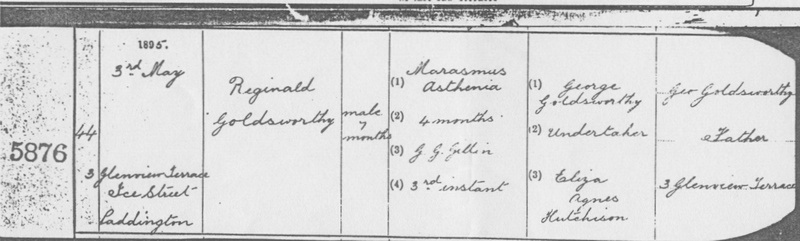 1895.
3rd May
44
5876
3 Glenview Terrace
Ice Street
Paddington
Reginald
Goldsworthy
male
7
months
(1) Marasmus
Asthenia
(2) 4 months
(3) G. G.
(4) 3rd instant
(1) George
Goldsworthy
(2) Undertaker
(3) Eliza
Agnes
Hutchison
Geo Goldsworthy
Father
3 Glenview Terrace